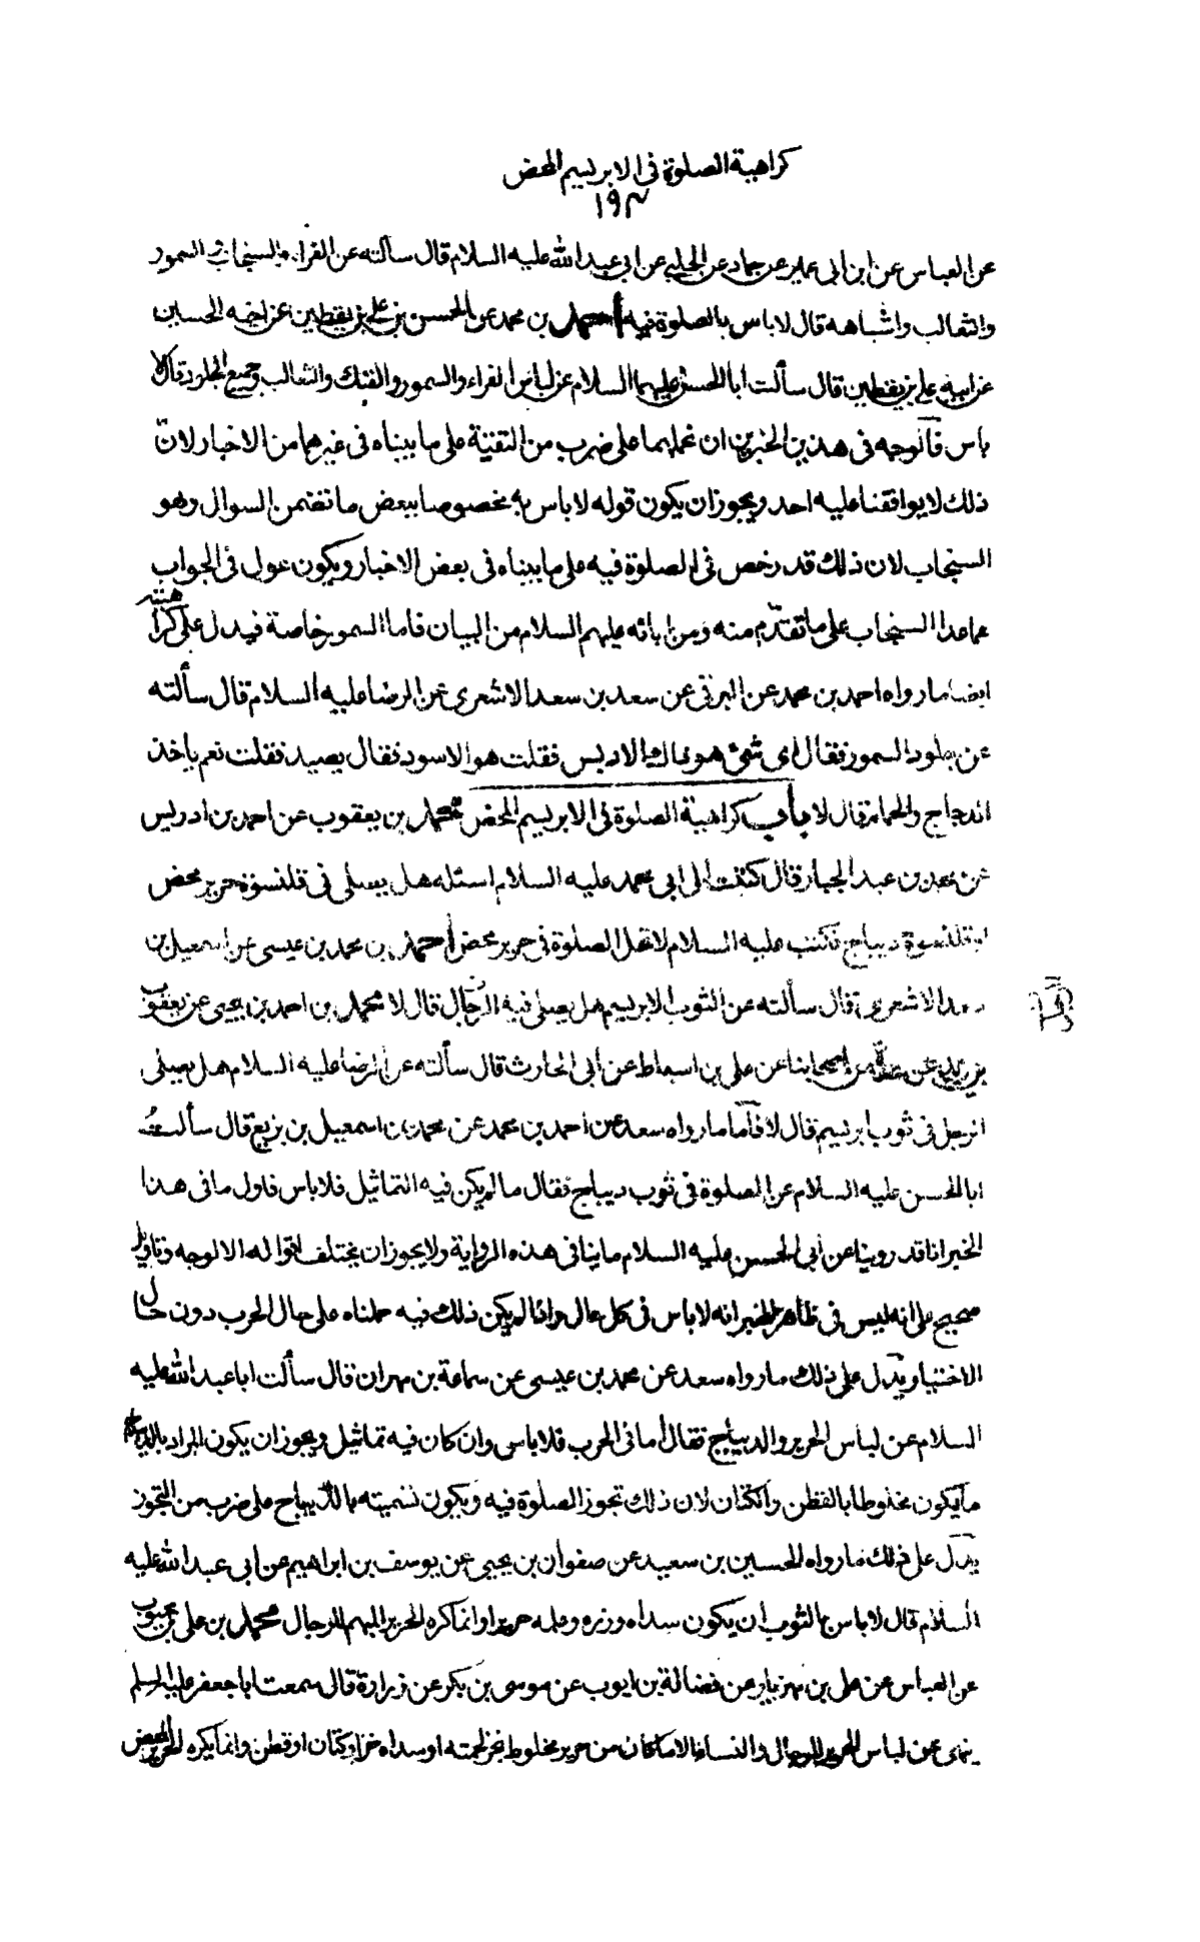 كراهية الصلوة فى الابريسم المحض
١٩٣
عن العباس عن ابن ابى عمير عن حماد عن الحلبى عن ابى عبد الله عليه السلام قال سألته عن الفراء والسنجاب والسمور
والثعالب واشباهه قال لا باس بالصلوة فيه أحمد بن محمد عن الحسن بن على بن يقطين عن اخيه الحسين
عن ابيه على بن يقطين قال سألت ابا الحسن عليهما السلام عن لباس الفراء والسمور والفنك والثعالب وجميع الجلود قال لا
باس فالوجه فى هذين الخبرين ان نحملهما على ضرب من التقيّة على ما بيناه فى غيرهما من الاخبار لانّ
ذلك لا يوافقنا عليه احد ويجوز ان يكون قوله لا باس به مخصوصا ببعض ما تضمن السوال وهو
السنجاب لان ذلك قد رخص فى الصلوة فيه على ما بيناه فى بعض الاخبار ويكون عول فى الجواب
عما عدا السنجاب على ما تقدّم منه ومن ابائه عليهم السلام من البيان فاما السمور خاصة فيدل على كراهيته
ايضا ما رواه احمد بن محمد عن البرقى عن سعد بن سعد الاشعرى عن الرضا عليه السلام قال سألته
عن جلود السمور فقال اى شئ هو ذاك الادبس فقلت هو الاسود فقال يصيد فقلت نعم ياخذ
الدجاج والحمام قال لا باب كراهية الصلوة فى الابريسم المحض محمد بن يعقوب عن احمد بن ادريس
عن محمد بن عبد الجبار قال كتبت الى ابى محمد عليه السلام اسئله هل يصلى فى قلنسوة حرير محض
او قلنسوة ديباج فكتب عليه السلام لا تحل الصلوة فى حرير محض أحمد بن محمد بن عيسى عن اسمعيل بن
سعد الاشعرى قال سألته عن الثوب الابريسم هل يصلى فيه الرجال قال لا محمد بن احمد بن يحيى عن يعقوب
بن يزيد عن عدّة من اصحابنا عن على بن اسباط عن أبى الحارث قال سألته عن الرضا عليه السلام هل يصلى
الرجل فى ثوب ابريسم قال لا فأما ما رواه سعد عن احمد بن محمد عن محمد بن اسمعيل بن بزيع قال سألت
ابا الحسن عليه السلام عن الصلوة فى ثوب ديباج فقال ما لم يكن فيه التماثيل فلا باس فاول ما فى هذا
الخبر انا قد روينا عن أبى الحسن عليه السلام ما ينافى هذه الرواية ولا يجوز ان يختلف اقواله الا لوجه وتاويل
صحيح على انه ليس فى ظاهر الخبر انه لا باس فى كل حال واذا لم يكن ذلك فيه حملناه على حال الحرب دون حال
الاختيار ويدل على ذلك ما رواه سعد عن محمد بن عيسى عن سماعة بن مهران قال سألت ابا عبد الله عليه
السلام عن لباس الحرير والديباج فقال أما فى الحرب فلا باس وان كان فيه تماثيل ويجوز ان يكون المراد بالديباج
ما يكون مخلوطا بالقطن والكتان لان ذلك تجوز الصلوة فيه ويكون تسميته بالديباج على ضرب من التجوز
يدل على ذلك ما رواه الحسين بن سعيد عن صفوان بن يحيى عن يوسف بن ابراهيم عن ابى عبد الله عليه
السلام قال لا باس بالثوب ان يكون سداه وزره وعلمه حريرا وانما كره الحرير المبهم للرجال محمد بن على بن محبوب
عن العباس عن على بن مهزيار عن فضالة بن ايوب عن موسى بن بكر عن زرارة قال سمعت ابا جعفر عليه السلم
ينهى عن لباس الحرير للرجال والنساء الا ما كان من حرير مخلوط بخز لحمته او سداه خز او كتان او قطن وانما يكره الحرير المحض